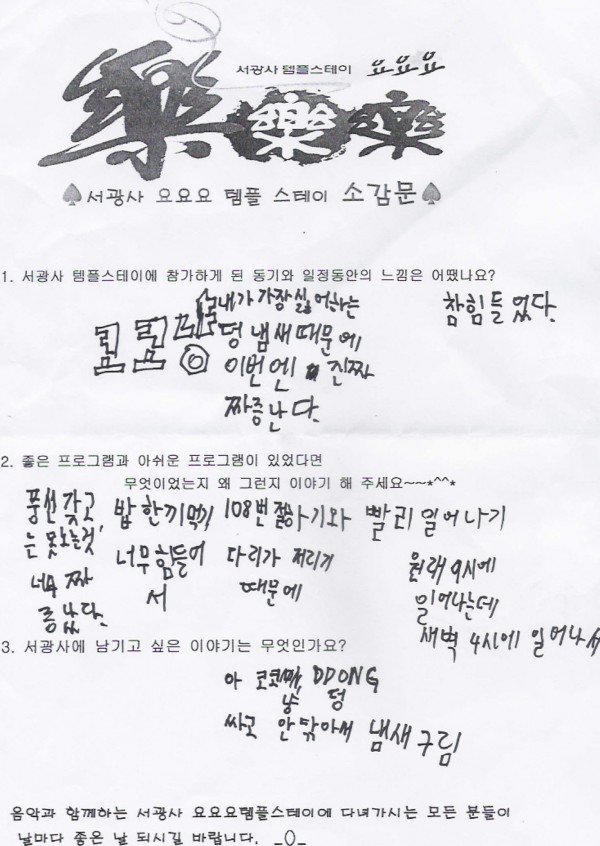 서광사 템플스테이 요요요
樂 樂 樂
♠서광사 요요요 템플 스테이 소감문♠
1. 서광사 템플스테이에 참가하게 된 동기와 일정동안의 느낌은 어땠나요?
내가 가장 싫어하는
덩 냄새때문에
이번엔 진짜
짜증난다.
참힘들었다.
2. 좋은 프로그램과 아쉬운 프로그램이 있었다면
무엇이었는지 왜 그런지 이야기 해 주세요~~*^^*
풍선 갖고
는 못노는것
너무 짜
증났다.
밥 한끼먹기
너무힘들어
서
108번 절하기와
다리가 저리기
때문에
빨리 일어나기
원래 9시에
일어나는데
새벽 4시에 일어나서
3. 서광사에 남기고 싶은 이야기는 무엇인가요?
아 DDONG
덩
싸고 안닦아서 냄새구림
음악과 함께하는 서광사 요요요템플스테이에 다녀가시는 모든 분들이
날마다 좋은 날 되시길 바랍니다. _0_